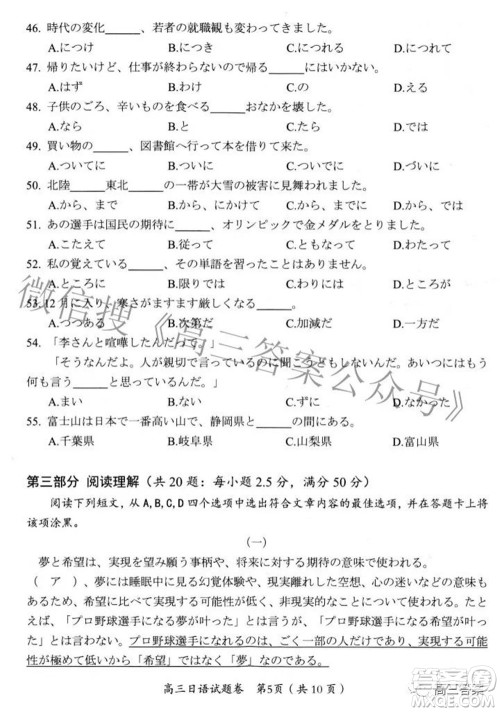 46. 時代の変化______、若者の就職観も変わってきました。
A.につけ B.につれて C.につけて D.につれ​て
47. 帰りたいけど、仕事が終わらないので帰る______にはいかない。
A.はず B.わけ C.の D.える
48. 子供のごろ、辛いものを食べる______おなかを壊した。
A.なら B.たら C.ば D.と
49. 買い物の______、図書館へ行って本を借りてきました。
A.ついてに B.ついでに C.ついで D.づいに
50. 北陸______東北______の一帯が大雪の被害に見舞われました。
A.から、まで B.から、までに C.にかけて、から D.から、にかけて
51. あの選手は国民の期待に______、オリンピックで金メダルをとりました。
A.こたえて B.従って C.とって D.対して
52. 私の覚えている______、その単語を習ったことはありません。
A.ところに B.限りでは C.以上は D.ところが
53. 12月に入り、寒さがますます厳しくなる______。
A.つつある B.次第だ C.加減だ D.一方だ
54. 「李さんと喧嘩したんだって。」
「そうなんだよ。人が親切で言っているのに返事もしないんだ。あいつについては、もう何も言う______と思っているよ。」
A.まい B.ない C.もの D.こと
55. 富士山は日本で一番高い山で、静岡県と______の間にある。
A.千葉県 B.岐阜県 C.山梨県 D.青森県
第三部分 阅读理解（共 20 题：每小题 2.5 分，满分 50 分）
阅读下列短文，从 A,B,C,D 四个选项中选出符合文章内容的最佳选项，并在答题卡上将
该项涂黑。
（一）
夢と希望は、実現を望み願う事柄や、将来に対する期待の意味で使われる。
（ ア ）、夢には睡眠中に見る幻覚体験や、現実からはずれた空想、心の迷いなどの意
味も含まれるため、希望に比べて実現する可能性が低く、非現実的なことも含まれる。たと
えば、「プロ野球選手になる夢」とは言うが、「プロ野球選手になる希望」とは言わない。
プロ野球選手になれるのは、ごく一部の人だけであり、実現する可能性が低いこ
とから「希望」ではなく「夢」なのである。
高三日语试题卷 第5页（共 10 页）
微信搜《高三答案公众号》
高三答案